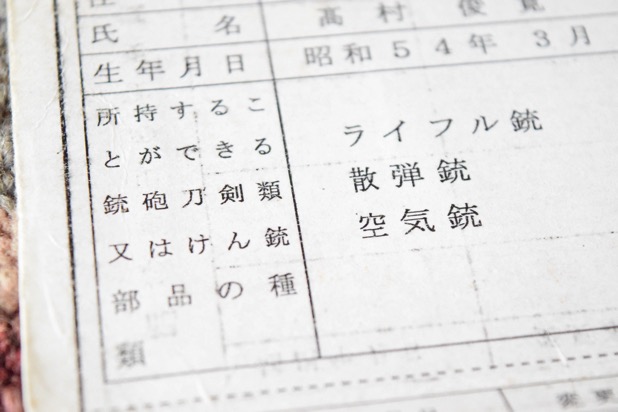 氏名 髙村 俊
生年月日 昭和54年3月
所持するこ
とができる
銃砲刀剣類
又はけん銃
部品の種
類
ライフル銃
散弾銃
空気銃
変更